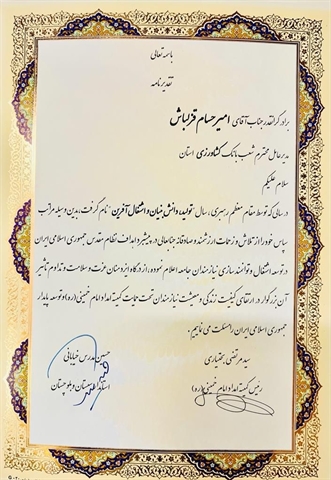 باسمه تعالی
تقدیرنامه
برادر گرانقدر جناب آقای امیرحسام قزلباش
مدیرعامل محترم شعب بانک کشاورزی استان
سلام علیکم
در سالی که توسط مقام معظم رهبری، سال "تولید، دانش بنیان و اشتغال آفرین" نام گرفت، بدین وسیله مراتب
سپاس خود را از تلاش و زحمات ارزشمند و صادقانه جنابعالی در پیشبرد اهداف نظام مقدس جمهوری اسلامی ایران
در توسعه اشتغال و توانمندسازی نیازمندان جامعه اعلام نموده، از درگاه ایزدمنان عزت و سلامت و تداوم تاثیر
آن بزرگوار در ارتقای کیفیت زندگی و معیشت نیازمندان تحت حمایت کمیته امداد امام خمینی (ره) و توسعه پایدار
جمهوری اسلامی ایران را مسئلت می نماییم.
سید مرتضی بختیاری
رئیس کمیته امداد امام خمینی (ره)
حسین مدرس خیابانی
استاندار سیستان و بلوچستان